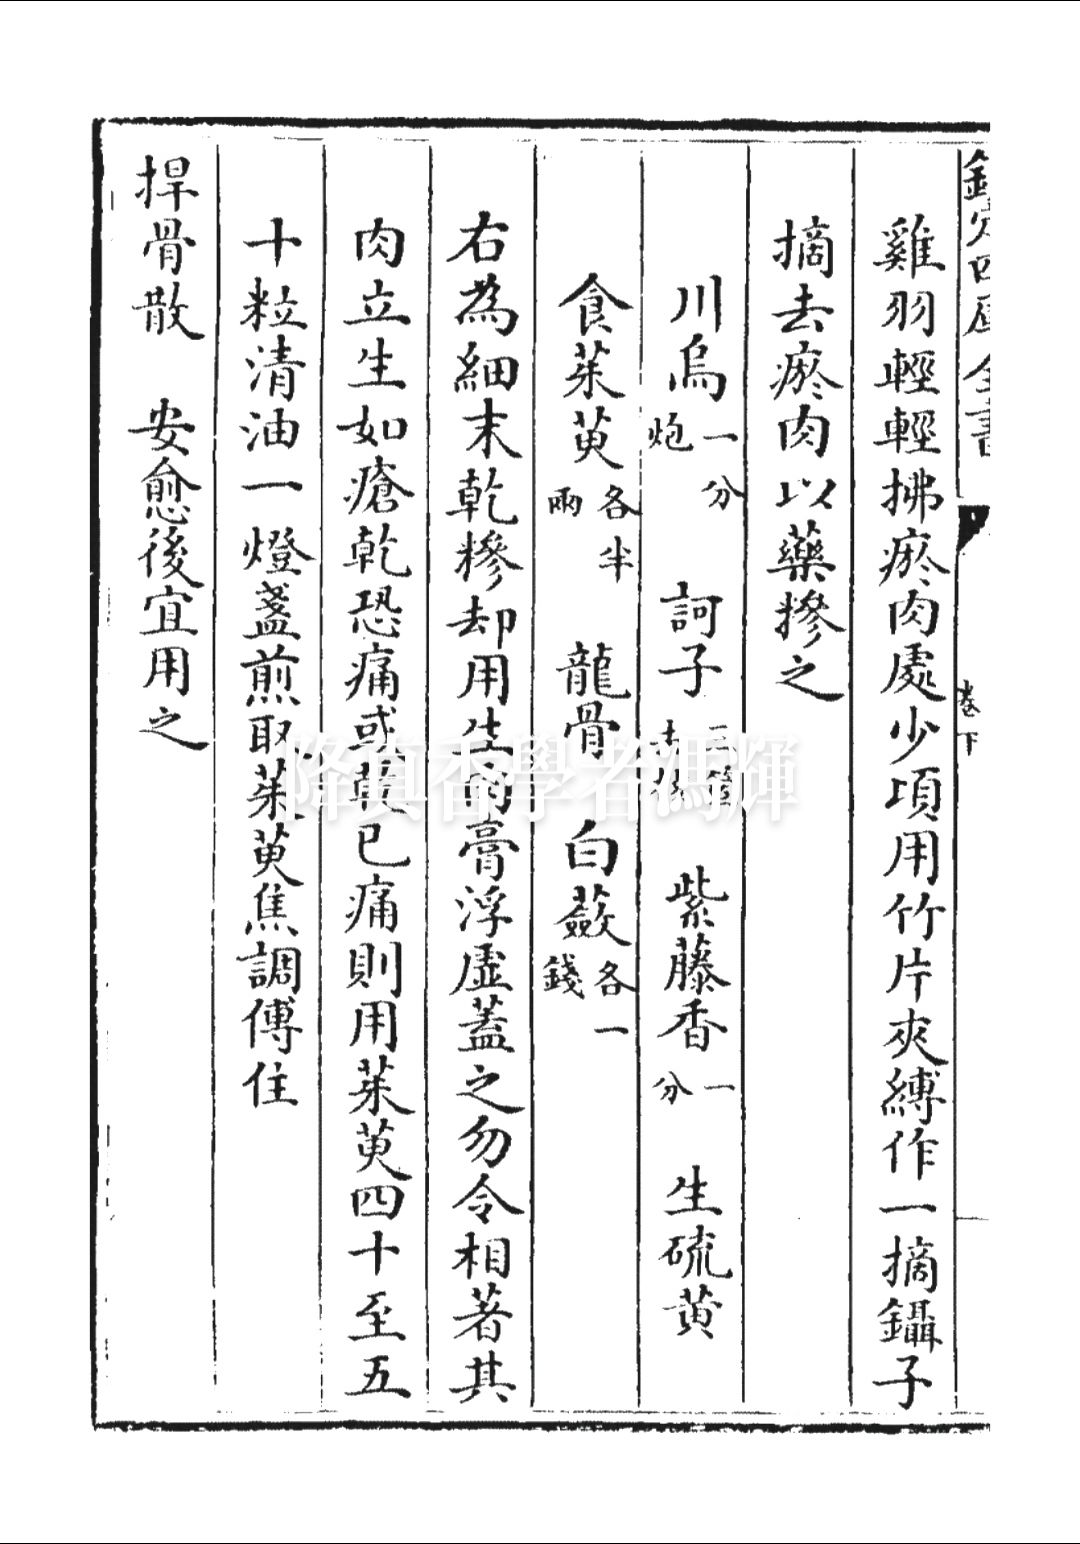 欽定四庫全書
卷下
雞羽輕輕拂瘀肉處少頃用竹片夾縛作一摘鑷子
摘去瘀肉以藥摻之
川烏一分炮 訶子 紫藤香一分 生硫黄
食茱萸各半兩 龍骨 白蘞各一錢
右為細末乾糝却用生肉膏浮虛蓋之勿令相著其
肉立生如瘡乾恐痛或乾已痛則用茱萸四十至五
十粒清油一燈盞煎取茱萸焦調傅住
捍骨散 安愈後宜用之
降真香學者馮輝